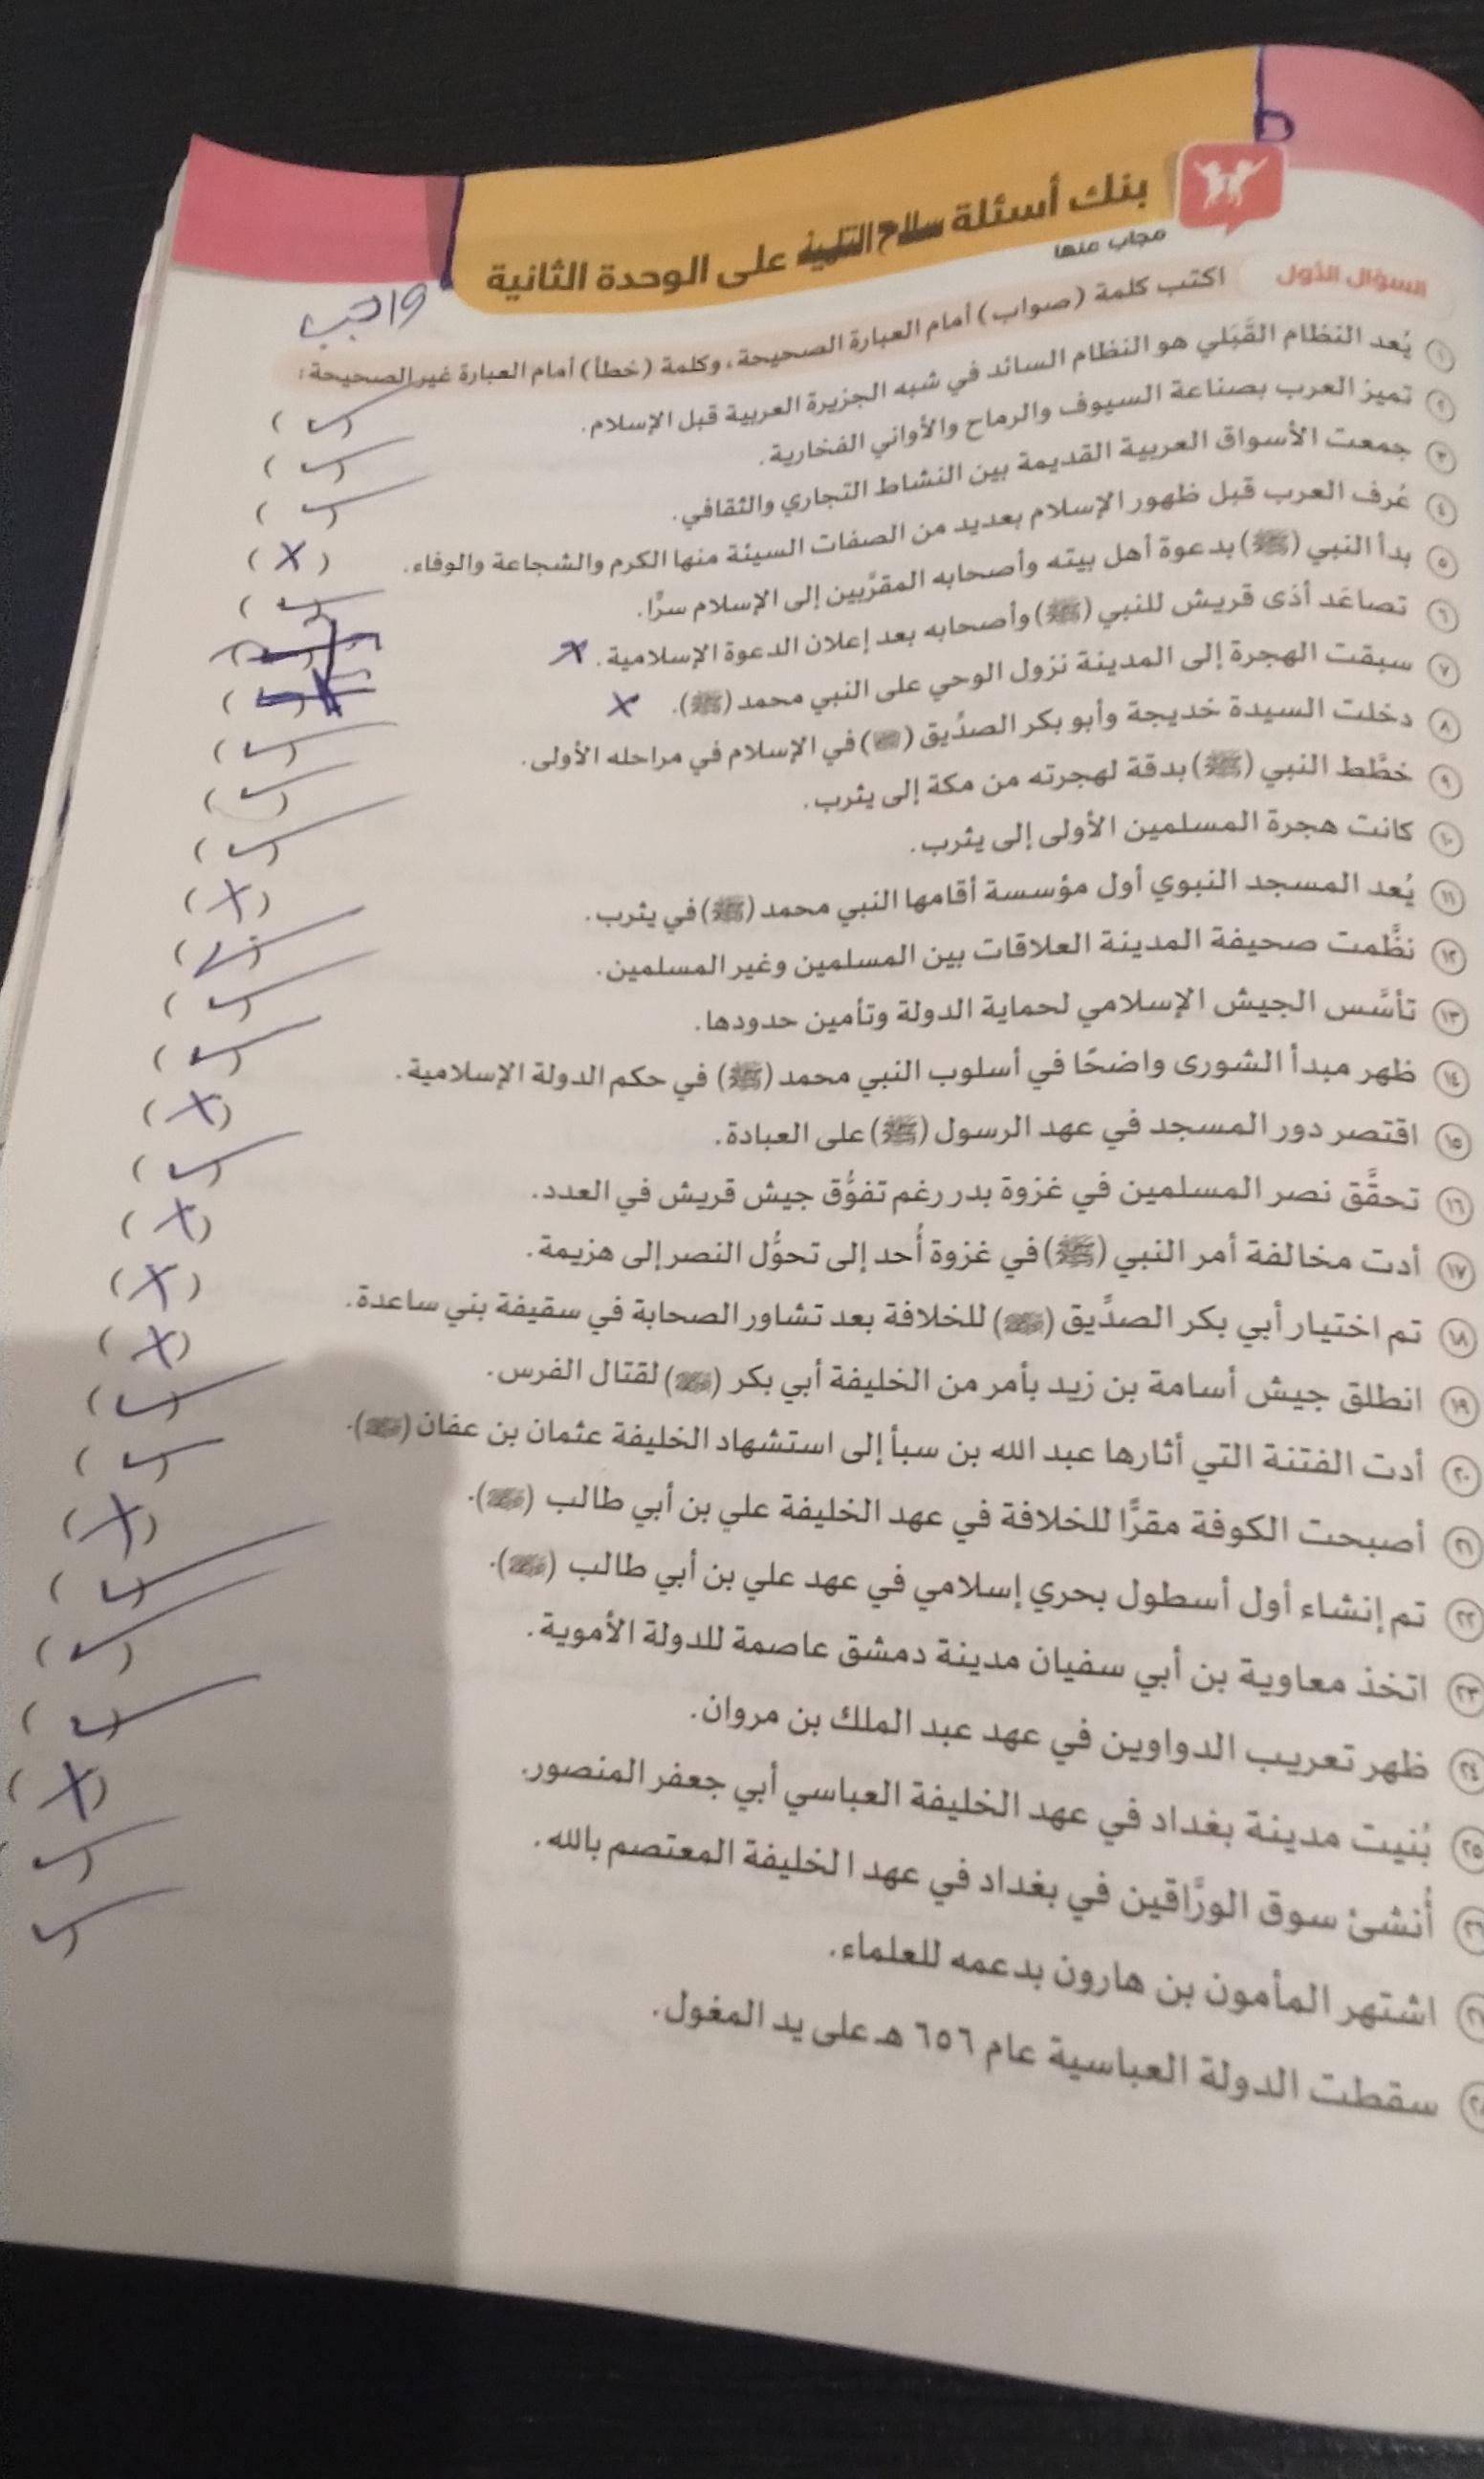 بنك أسئلة سلاح التلميذ على الوحدة الثانية
مجاب عنها
واجب
السؤال الأول اكتب كلمة (صواب) أمام العبارة الصحيحة، وكلمة (خطأ) أمام العبارة غير الصحيحة:
١ يُعد النظام القَبَلي هو النظام السائد في شبه الجزيرة العربية قبل الإسلام. (✓)
٢ تميز العرب بصناعة السيوف والرماح والأواني الفخارية. (✓)
٣ جمعت الأسواق العربية القديمة بين النشاط التجاري والثقافي. (✓)
٤ عُرف العرب قبل ظهور الإسلام بعديد من الصفات السيئة منها الكرم والشجاعة والوفاء. (X)
٥ بدأ النبي (ﷺ) بدعوة أهل بيته وأصحابه المقرَّبين إلى الإسلام سرًّا. (✓)
٦ تصاعَد أذى قريش للنبي (ﷺ) وأصحابه بعد إعلان الدعوة الإسلامية. X
٧ سبقت الهجرة إلى المدينة نزول الوحي على النبي محمد (ﷺ). X
٨ دخلت السيدة خديجة وأبو بكر الصدِّيق (رضي الله عنهما) في الإسلام في مراحله الأولى. (✓)
٩ خطَّط النبي (ﷺ) بدقة لهجرته من مكة إلى يثرب. (✓)
١٠ كانت هجرة المسلمين الأولى إلى يثرب. (✓)
١١ يُعد المسجد النبوي أول مؤسسة أقامها النبي محمد (ﷺ) في يثرب. (X)
١٢ نظَّمت صحيفة المدينة العلاقات بين المسلمين وغير المسلمين. (✓)
١٣ تأسَّس الجيش الإسلامي لحماية الدولة وتأمين حدودها. (✓)
١٤ ظهر مبدأ الشورى واضحًا في أسلوب النبي محمد (ﷺ) في حكم الدولة الإسلامية. (✓)
١٥ اقتصر دور المسجد في عهد الرسول (ﷺ) على العبادة. (X)
١٦ تحقَّق نصر المسلمين في غزوة بدر رغم تفوُّق جيش قريش في العدد. (✓)
١٧ أدت مخالفة أمر النبي (ﷺ) في غزوة أُحد إلى تحوُّل النصر إلى هزيمة. (X)
١٨ تم اختيار أبي بكر الصدِّيق (رضي الله عنه) للخلافة بعد تشاور الصحابة في سقيفة بني ساعدة. (X)
١٩ انطلق جيش أسامة بن زيد بأمر من الخليفة أبي بكر (رضي الله عنه) لقتال الفرس. (X)
٢٠ أدت الفتنة التي أثارها عبد الله بن سبأ إلى استشهاد الخليفة عثمان بن عفان (رضي الله عنه). (✓)
٢١ أصبحت الكوفة مقرًّا للخلافة في عهد الخليفة علي بن أبي طالب (رضي الله عنه). (✓)
٢٢ تم إنشاء أول أسطول بحري إسلامي في عهد علي بن أبي طالب (رضي الله عنه). (X)
٢٣ اتخذ معاوية بن أبي سفيان مدينة دمشق عاصمة للدولة الأموية. (✓)
٢٤ ظهر تعريب الدواوين في عهد عبد الملك بن مروان. (✓)
٢٥ بُنيت مدينة بغداد في عهد الخليفة العباسي أبي جعفر المنصور. (✓)
٢٦ أُنشئ سوق الورَّاقين في بغداد في عهد الخليفة المعتصم بالله. (X)
٢٧ اشتهر المأمون بن هارون بدعمه للعلماء. ✓
٢٨ سقطت الدولة العباسية عام ٦٥٦ هـ على يد المغول. ✓